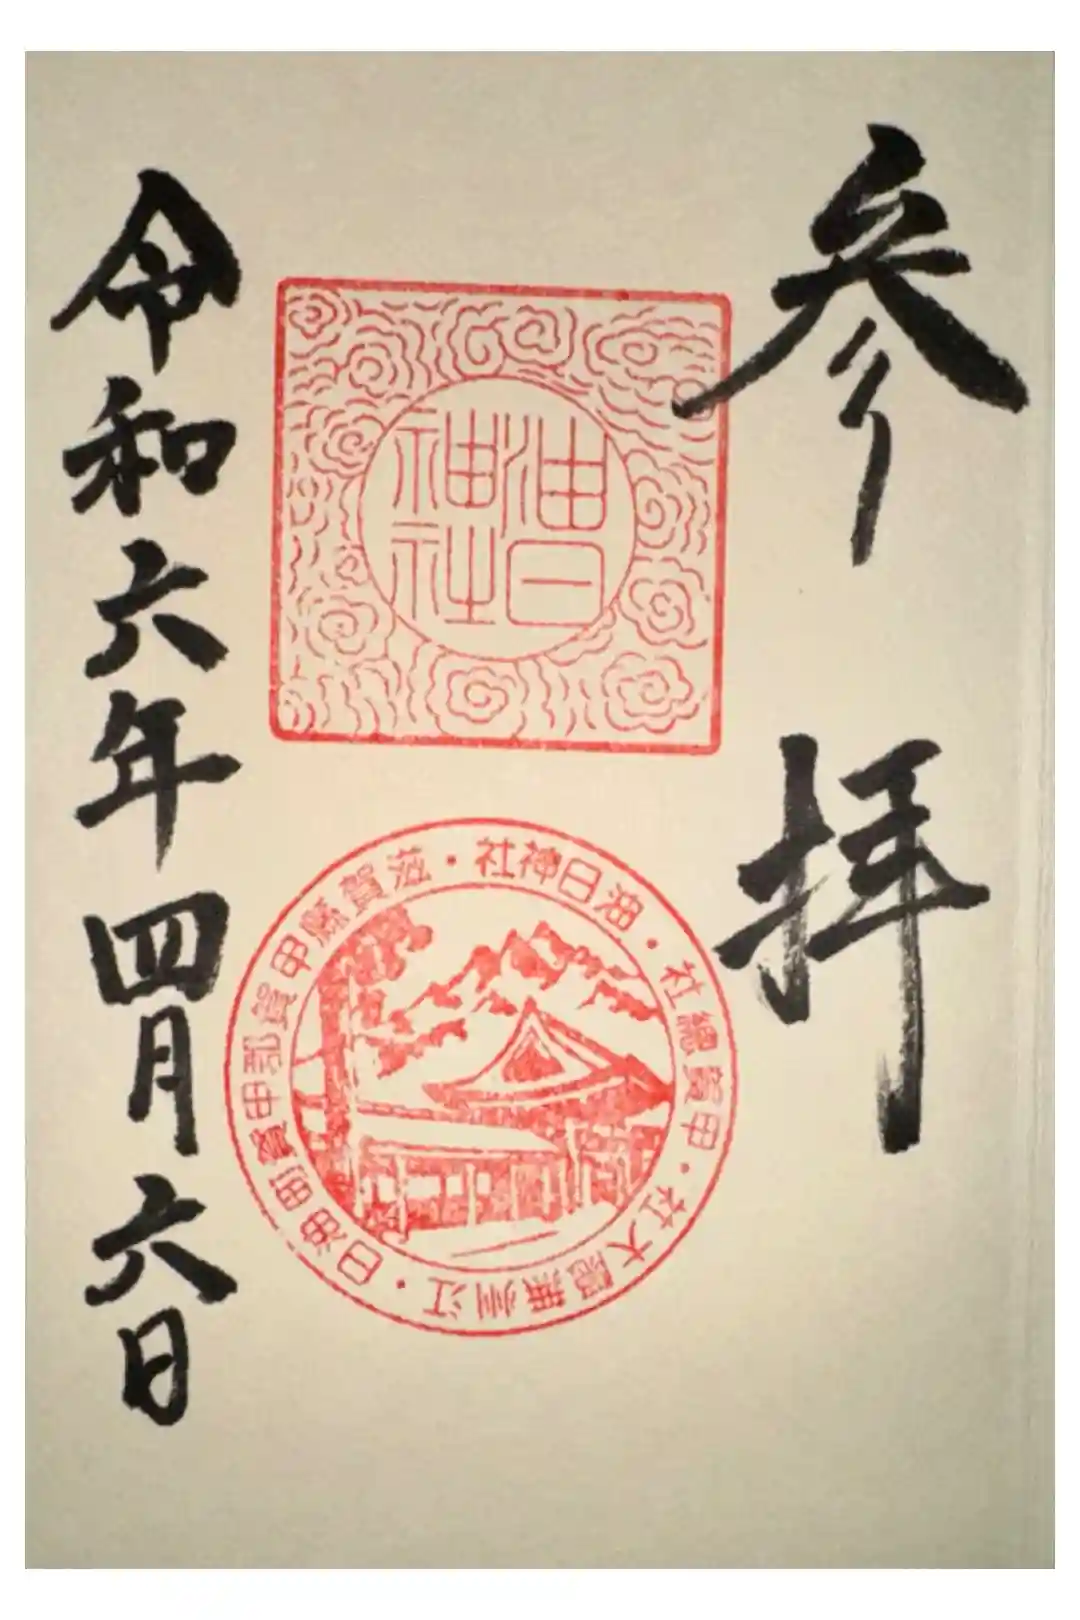 参拝
油日
神社
油日神社・滋賀縣甲賀郡甲賀町油日・江州無隠大社・甲賀總社・
令和六年四月六日